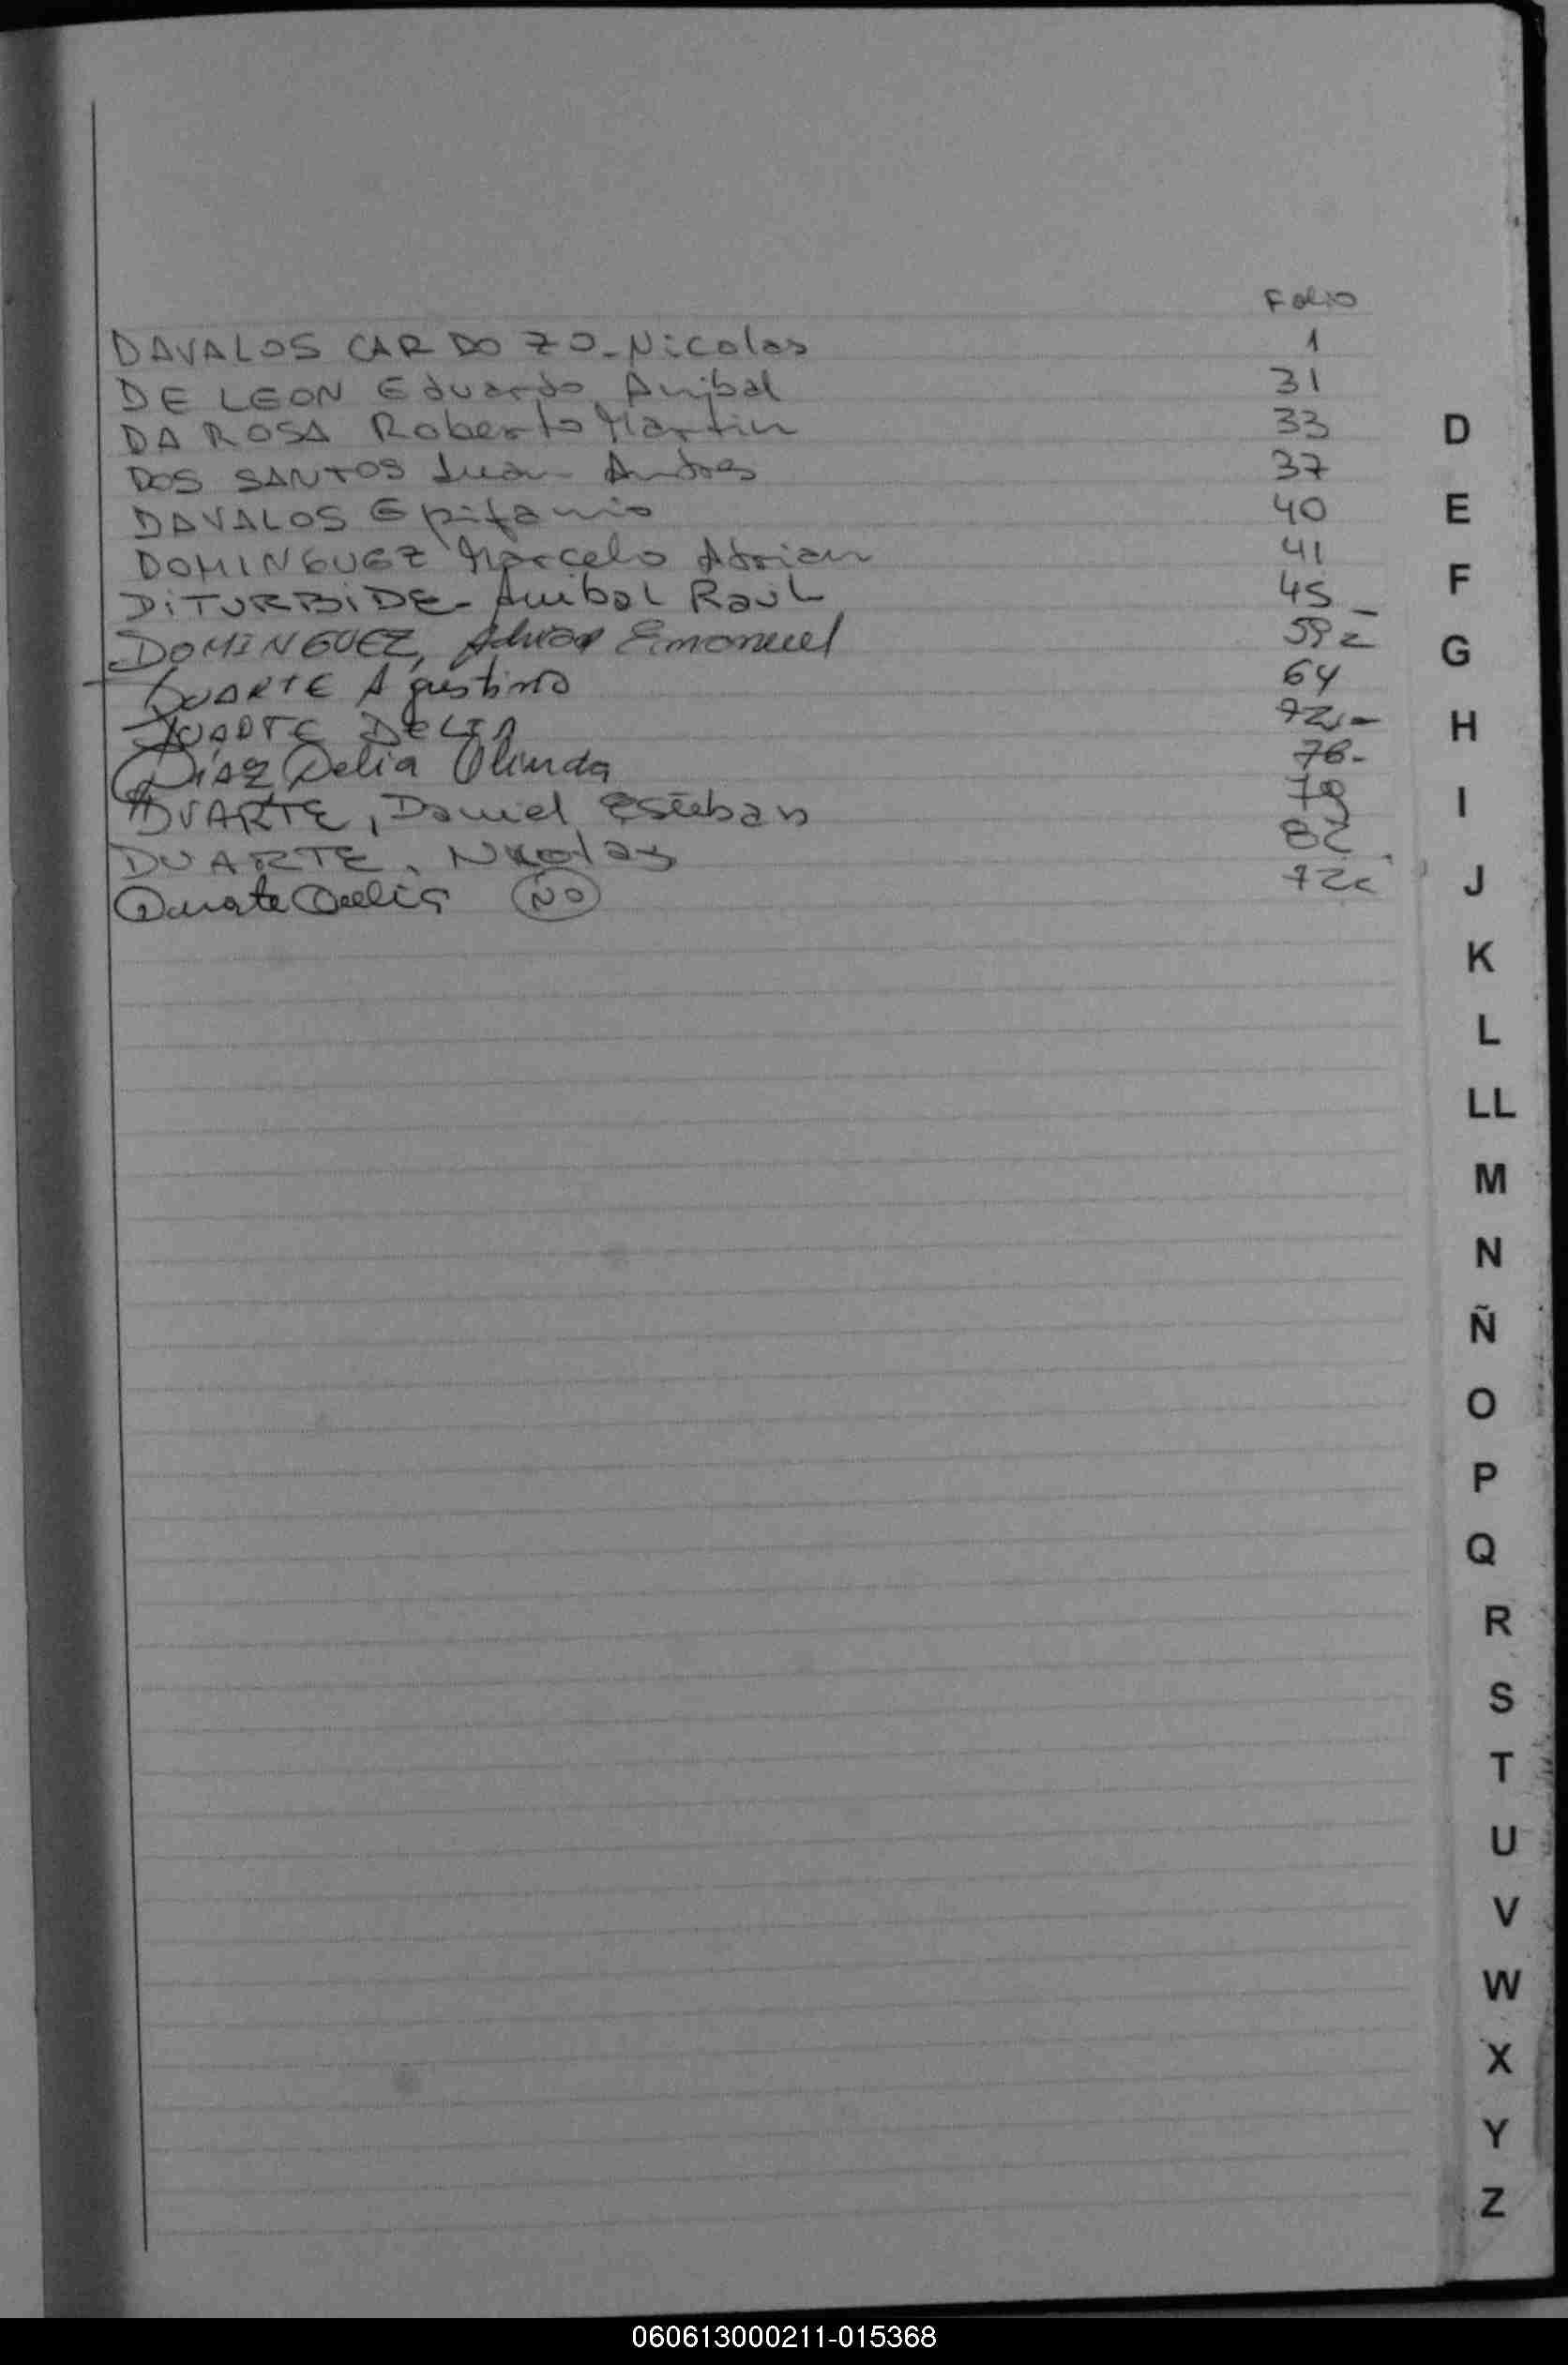 Folio
DAVALOS CARDOZO-Nicolas 1
DE LEON Eduardo Anibal 31
DA ROSA Roberto Martin 33
DOS SANTOS Juan Andres 37
DAVALOS Epifanio 40
DOMINGUEZ Marcelo Adrian 41
DiTURBiDE- Anibal RaUL 45
DOMINGUEZ, Adrian Emanuel 59
DUARTE Agustina 64
DUARTE DELIA 72
Diaz Delia Olinda 76-
DUARTE, Daniel Esteban 79
DUARTE, Nicolas 82
Duarte Delia NO 72
D
E
F
G
H
I
J
K
L
LL
M
N
Ñ
O
P
Q
R
S
T
U
V
W
X
Y
Z
060613000211-015368